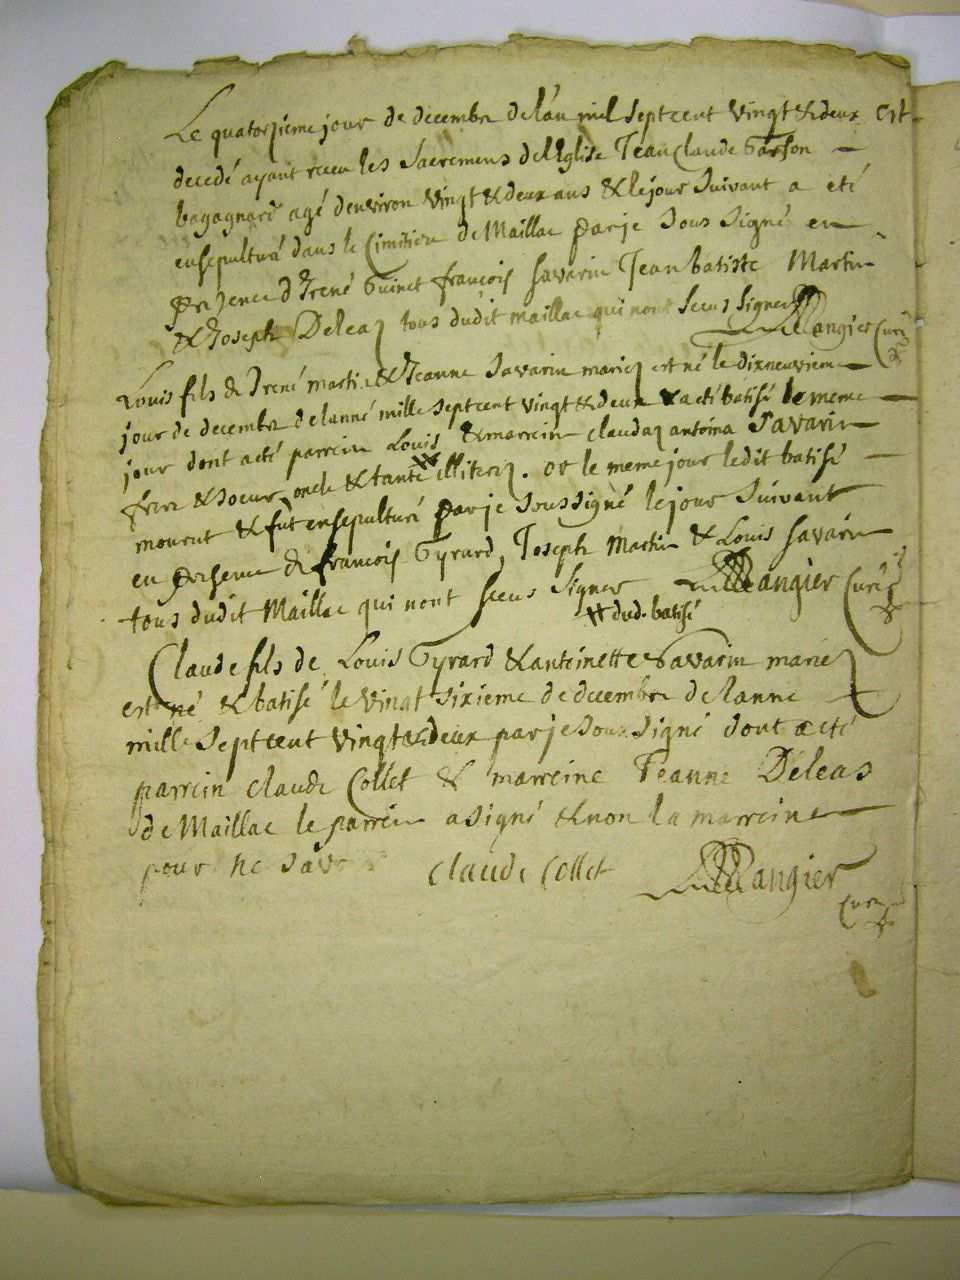 Le quatorzieme jour de decembre de l'an mil sept cent vingt & deux est
decedé ayant receu les Sacremens de l'Eglise Jean Claude
agé d'environ vingt & deux ans & le jour Suivant a eté
ensepulturé dans le Cimitiere de Maillac par je Sous Signé en
presence d'Irené Guinet françois Savarin Jean batiste Martin
& Joseph Deleaz tous dudit maillac qui nont Sceus Signer Mangier Curé
Louis fils de Irené martin & Jeanne Savarin mariez est né le dixneuvieme
jour de decembre de lanné mille Sept cent vingt & deux & a eté batisé le meme
jour dont a eté parrein Louis & marrein claudaz antoina Savarin
frere & soeur oncle & tante illiterez. or le meme jour ledit batisé
mourut & fut ensepulturé par je Soussigné le jour Suivant
en presence de françois Gyrard, Joseph Martin & Louis Savarin
tous dudit Maillac qui nont sceus Signer Mangier Curé
dud. batisé
Claude fils de Louis Gyrard & antoinette Savarin mariez
est né & batisé le vingt Sixieme de decembre de lanne
mille Sept cent vingt & deux par je Sous Signé dont a eté
parrein claude Collet & marreine Jeanne Déleas
de Maillac le parrein a signé & non la marreine
pour ne Savo
Claude Collet Mangier
Curé